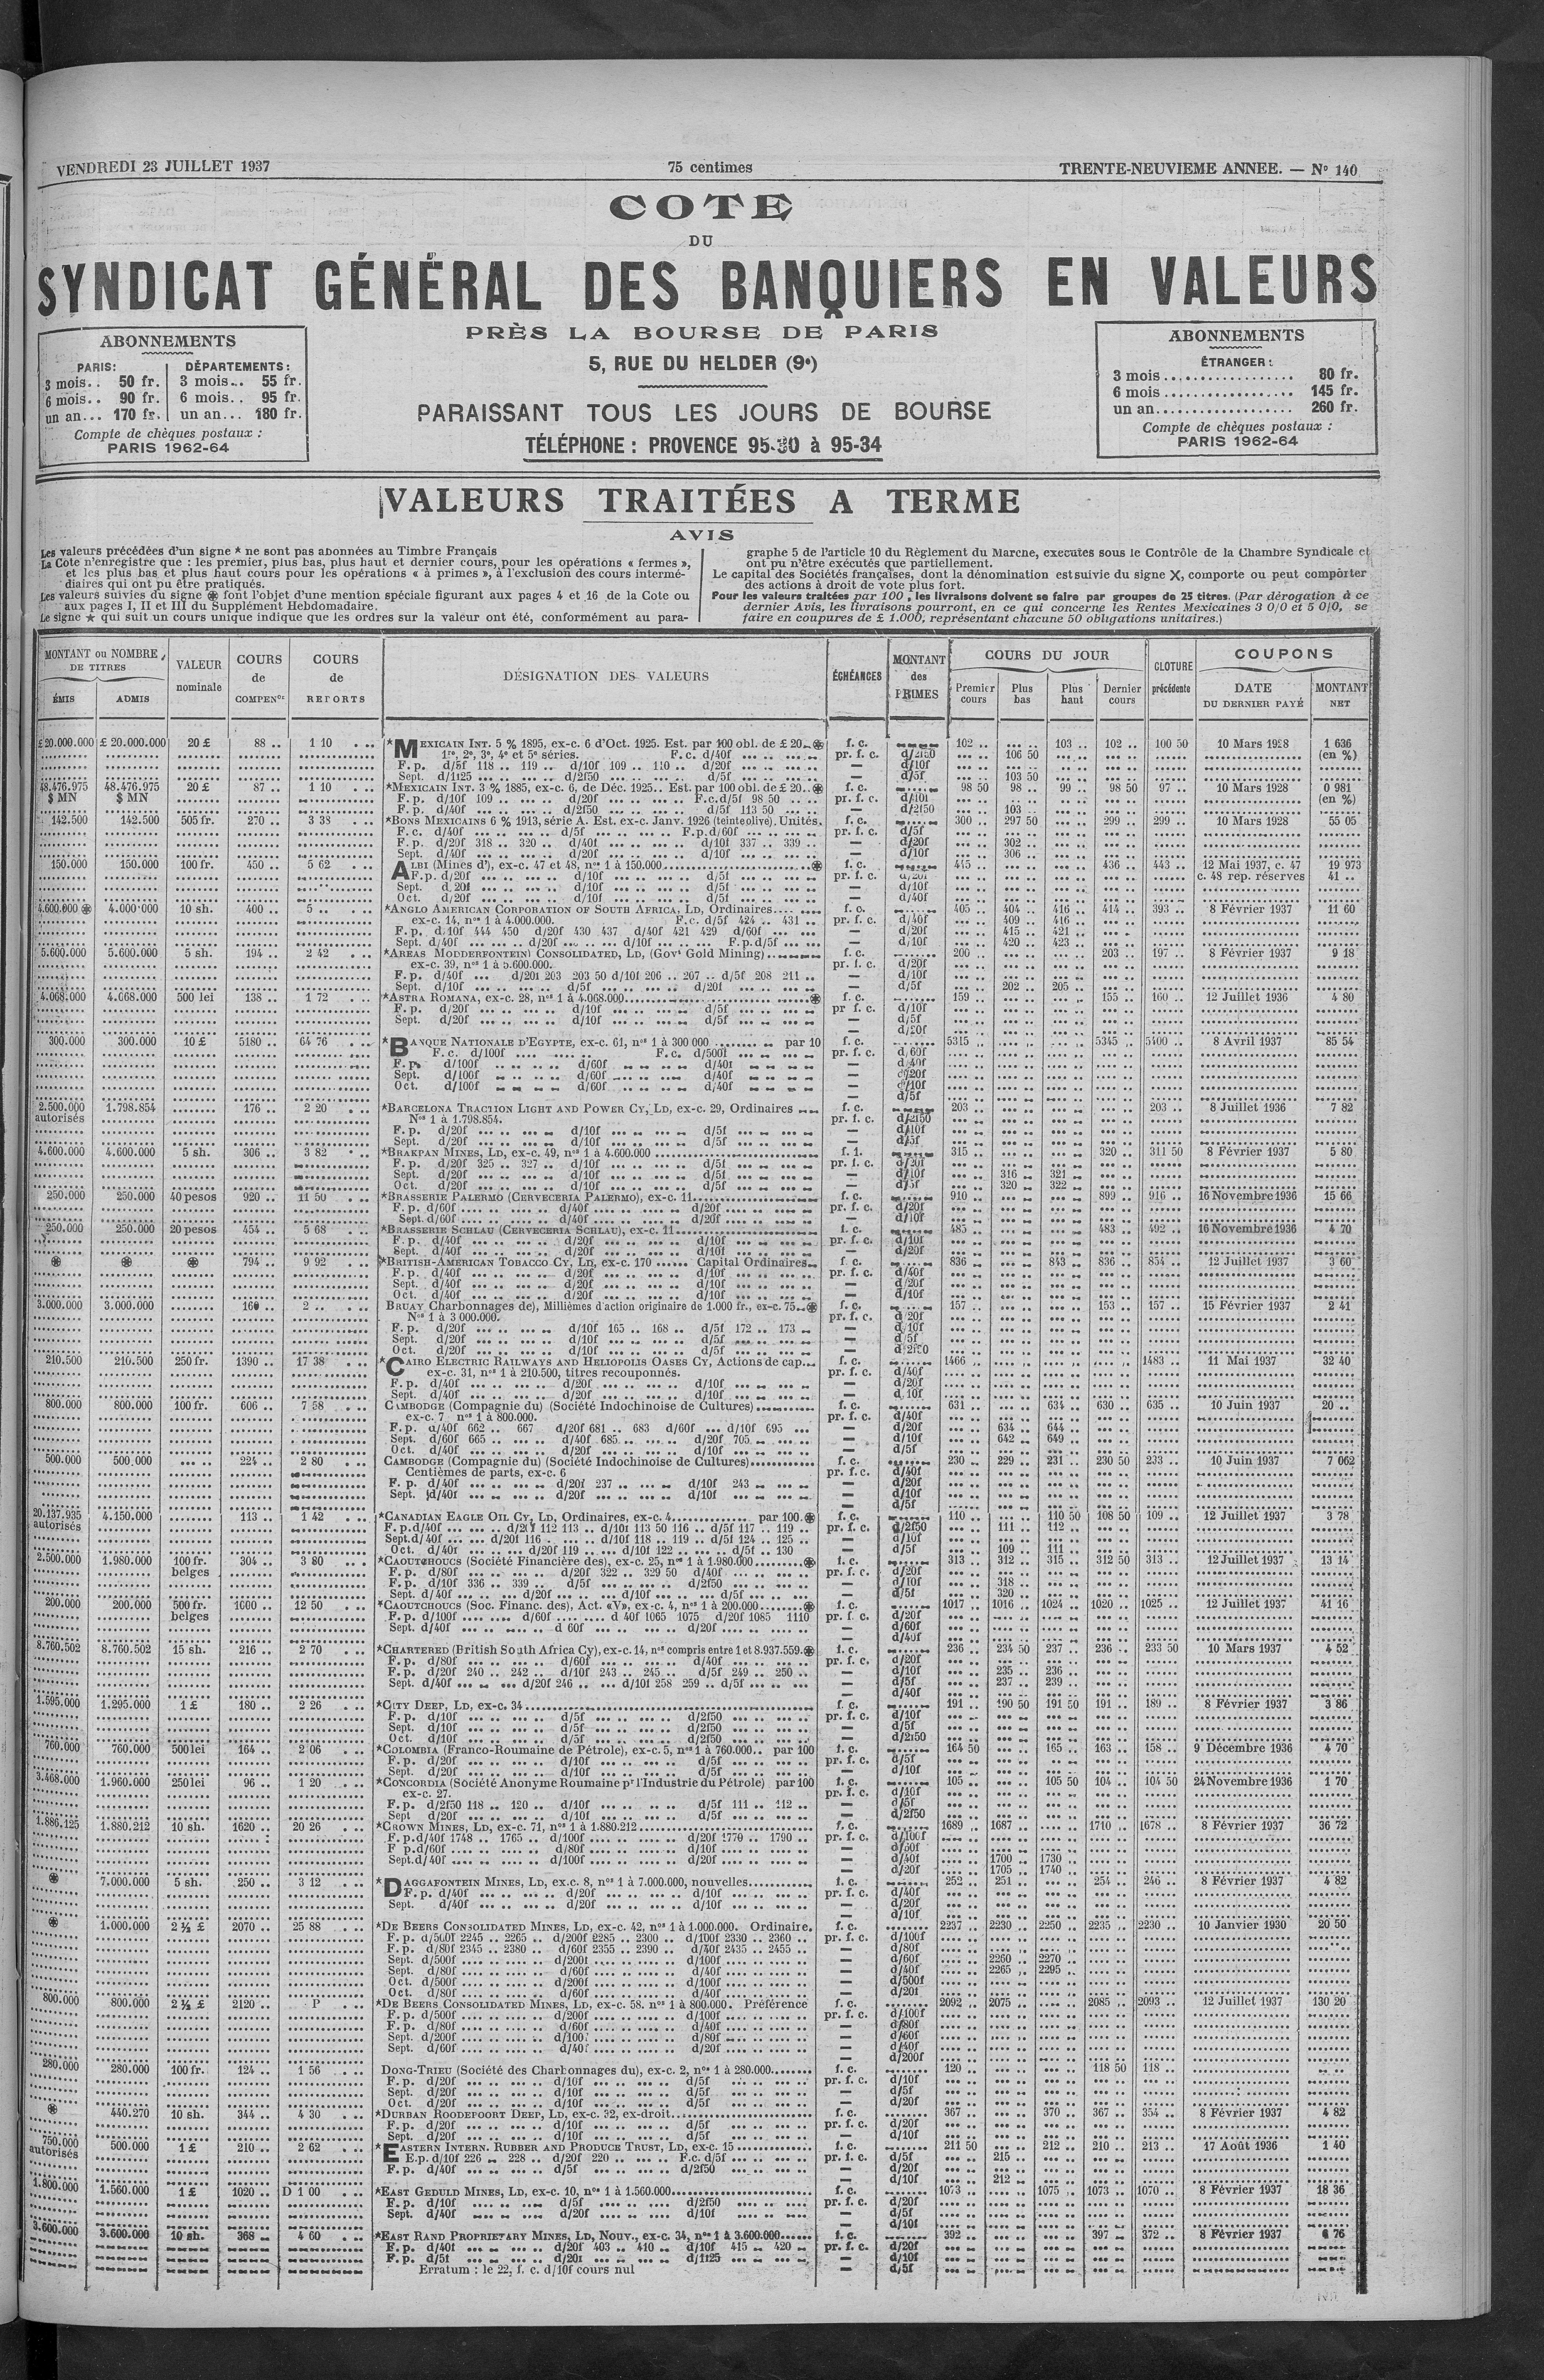 VENDREDI 23 JUILLET 1937 75 centimes TRENTE-NEUVIEME ANNEE. — N° 140
COTE
DU
SYNDICAT GÉNÉRAL DES BANQUIERS EN VALEURS
PRÈS LA BOURSE DE PARIS
5, RUE DU HELDER (9e)
PARAISSANT TOUS LES JOURS DE BOURSE
TÉLÉPHONE : PROVENCE 95-30 à 95-34
ABONNEMENTS
PARIS: DÉPARTEMENTS:
3 mois.. 50 fr. 3 mois.. 55 fr.
6 mois.. 90 fr. 6 mois.. 95 fr.
un an... 170 fr. un an... 180 fr.
Compte de chèques postaux :
PARIS 1962-64
ABONNEMENTS
ÉTRANGER :
3 mois 80 fr.
6 mois 145 fr.
un an 260 fr.
Compte de chèques postaux :
PARIS 1962-64
VALEURS TRAITÉES A TERME
AVIS
Les valeurs précédées d'un signe * ne sont pas abonnées au Timbre Français
La Cote n'enregistre que : les premier, plus bas, plus haut et dernier cours, pour les opérations « fermes »,
et les plus bas et plus haut cours pour les opérations « à primes », à l'exclusion des cours intermé-
diaires qui ont pu être pratiqués.
Les valeurs suivies du signe ⊛ font l'objet d'une mention spéciale figurant aux pages 4 et 16 de la Cote ou
aux pages I, II et III du Supplément Hebdomadaire.
Le signe ★ qui suit un cours unique indique que les ordres sur la valeur ont été, conformément au para-
graphe 5 de l'article 10 du Règlement du Marché, exécutés sous le Contrôle de la Chambre Syndicale et
ont pu n'être exécutés que partiellement.
Le capital des Sociétés françaises, dont la dénomination est suivie du signe X, comporte ou peut comporter
des actions à droit de vote plus fort.
Pour les valeurs traitées par 100, les livraisons doivent se faire par groupes de 25 titres. (Par dérogation à ce
dernier Avis, les livraisons pourront, en ce qui concerne les Rentes Mexicaines 3 0/0 et 5 0/0, se
faire en coupures de £ 1.000, représentant chacune 50 obligations unitaires.)
MONTANT ou NOMBRE DE TITRES
ÉMIS ADMIS
VALEUR nominale
COURS de COMPENon
COURS de REPORTS
DÉSIGNATION DES VALEURS
ÉCHÉANCES
MONTANT des PRIMES
COURS DU JOUR
Premier cours Plus bas Plus haut Dernier cours
CLOTURE précédente
COUPONS
DATE DU DERNIER PAYÉ MONTANT NET
£ 20.000.000 £ 20.000.000 20 £ 88 .. 1 10 *MEXICAIN INT. 5 % 1895, ex-c. 6 d'Oct. 1925. Est. par 100 obl. de £ 20 ⊛ f. c. 102 .. 103 .. 102 .. 100 50 10 Mars 1928 1 636
1re, 2e, 3e, 4e et 5e séries. F. c. d/40f pr. f. c. d/2f50 106 50 (en %)
F. p. d/5f 118 .. 119 .. d/10f 109 .. 110 .. d/20f — d/10f
Sept. d/1f25 d/2f50 d/5f — d/5f 103 50
48.476.975 48.476.975 20 £ 87 .. 1 10 *MEXICAIN INT. 3 % 1885, ex-c. 6, de Déc. 1925.. Est. par 100 obl. de £ 20.. ⊛ f. c. 98 50 98 .. 99 .. 98 50 97 .. 10 Mars 1928 0 981
$ MN $ MN F. p. d/10f 109 .. d/20f F.c.d/5f 98 50 pr. f. c. d/10f (en %)
F. p. d/40f d/2f50 d/5f 113 50 — d/2f50 103
142.500 142.500 505 fr. 270 .. 3 38 *BONS MEXICAINS 6 % 1913, série A. Est. ex-c. Janv. 1926 (teinte olive). Unités. f. c. 300 .. 297 50 299 .. 299 .. 10 Mars 1928 55 05
F. c. d/40f d/5f F.p.d/60f pr. f. c. d/5f
F. p. d/20f 318 .. 320 .. d/40f d/10f 337 .. 339 .. — d/20f 302 ..
Sept. d/40f d/20f d/10f — d/10f 306 ..
150.000 150.000 100 fr. 450 .. 5 62 ALBI (Mines d'), ex-c. 47 et 48, nos 1 à 150.000 ⊛ f. c. 445 .. 436 .. 443 .. 12 Mai 1937, c. 47 19 973
F. p. d/20f d/10f d/5f pr. f. c. d/20f c. 48 rep. réserves 41 ..
Sept. d/20f d/10f d/5f — d/10f
Oct. d/20f d/10f d/5f — d/40f
4.600.000 ⊛ 4.000.000 10 sh. 400 .. 5 .. *ANGLO AMERICAN CORPORATION OF SOUTH AFRICA, LD, Ordinaires f. c. 405 .. 404 .. 416 .. 414 .. 393 .. 8 Février 1937 11 60
ex-c. 14, nos 1 à 4.000.000. F.c. d/5f 424 .. 431 .. pr. f. c. d/40f 409 .. 416 ..
F. p. d/10f 444 450 d/20f 430 437 d/40f 421 429 d/60f — d/20f 415 .. 421 ..
Sept. d/40f d/20f d/10f F.p.d/5f — d/10f 420 .. 423 ..
5.600.000 5.600.000 5 sh. 194 .. 2 42 *AREAS MODDERFONTEIN CONSOLIDATED, LD, (Govt Gold Mining) f. c. 200 .. 203 .. 197 .. 8 Février 1937 9 18
ex-c. 39, nos 1 à 5.600.000. pr. f. c. d/20f
F. p. d/40f d/20f 203 203 50 d/10f 206 .. 207 .. d/5f 208 211 .. — d/10f
Sept. d/10f d/5f d/20f — d/5f 202 .. 205 ..
4.068.000 4.068.000 500 lei 138 .. 1 72 *ASTRA ROMANA, ex-c. 28, nos 1 à 4.068.000 ⊛ f. c. 159 .. 155 .. 160 .. 12 Juillet 1936 4 80
F. p. d/20f d/10f d/5f pr. f. c. d/10f
Sept. d/20f d/10f d/5f — d/5f
— d/20f
300.000 300.000 10 £ 5180 .. 64 76 *BANQUE NATIONALE D'EGYPTE, ex-c. 61, nos 1 à 300 000 par 10 f. c. 5315 .. 5345 .. 5400 .. 8 Avril 1937 85 54
F. c. d/100f F. c. d/500f pr. f. c. d/60f
F. p. d/100f d/60f d/40f — d/40f
Sept. d/100f d/60f d/40f — d/20f
Oct. d/100f d/60f d/40f — d/10f
— d/5f
2.500.000 1.798.854 176 .. 2 20 *BARCELONA TRACTION LIGHT AND POWER CY, LD, ex-c. 29, Ordinaires f. c. 203 .. 203 .. 8 Juillet 1936 7 82
autorisés Nos 1 à 1.798.854. pr. f. c. d/2f50
F. p. d/20f d/10f d/5f — d/10f
Sept. d/20f d/10f d/5f — d/5f
4.600.000 4.600.000 5 sh. 306 .. 3 82 *BRAKPAN MINES, LD, ex-c. 49, nos 1 à 4.600.000 f. c. 315 .. 320 .. 311 50 8 Février 1937 5 80
F. p. d/20f 325 .. 327 .. d/10f d/5f pr. f. c. d/20f
Sept. d/20f d/10f d/5f — d/10f 316 .. 321 ..
Oct. d/20f d/10f d/5f — d/5f 320 .. 322 ..
250.000 250.000 40 pesos 920 .. 11 50 *BRASSERIE PALERMO (CERVECERIA PALERMO), ex-c. 11 f. c. 910 .. 899 .. 916 .. 16 Novembre 1936 15 66
F. p. d/60f d/40f d/20f pr. f. c. d/20f
Sept. d/60f d/40f d/20f — d/10f
250.000 250.000 20 pesos 454 .. 5 68 *BRASSERIE SCHLAU (CERVECERIA SCHLAU), ex-c. 11 f. c. 485 .. 483 .. 492 .. 16 Novembre 1936 4 70
F. p. d/40f d/20f d/10f pr. f. c. d/10f
Sept. d/40f d/20f d/10f — d/20f
⊛ ⊛ ⊛ 794 .. 9 92 *BRITISH-AMERICAN TOBACCO CY, LD, ex-c. 170 Capital Ordinaires f. c. 836 .. 843 .. 836 .. 854 .. 12 Juillet 1937 3 60
F. p. d/40f d/20f d/10f pr. f. c. d/40f
Sept. d/40f d/20f d/10f — d/20f
Oct. d/40f d/20f d/10f — d/10f
3.000.000 3.000.000 160 .. 2 .. BRUAY Charbonnages de), Millièmes d'action originaire de 1.000 fr., ex-c. 75.. ⊛ f. c. 157 .. 153 .. 157 .. 15 Février 1937 2 41
Nos 1 à 3 000.000. pr. f. c. d/20f
F. p. d/20f d/10f 165 .. 168 .. d/5f 172 .. 173 — d/10f
Sept. d/20f d/10f d/5f — d/5f
Oct. d/20f d/10f d/5f — d/2f50
210.500 210.500 250 fr. 1390 .. 17 38 *CAIRO ELECTRIC RAILWAYS AND HELIOPOLIS OASES CY, Actions de cap... f. c. 1466 .. 1483 .. 11 Mai 1937 32 40
ex-c. 31, nos 1 à 210.500, titres recouponnés. pr. f. c. d/40f
F. p. d/40f d/20f d/10f — d/20f
Sept. d/40f d/20f d/10f — d/10f
800.000 800.000 100 fr. 606 .. 7 58 CAMBODGE (Compagnie du) (Société Indochinoise de Cultures) f. c. 631 .. 634 .. 630 .. 635 .. 10 Juin 1937 20 ..
ex-c. 7 nos 1 à 800.000. pr. f. c. d/40f
F. p. d/40f 662 .. 667 d/20f 681 .. 683 d/60f d/10f 695 — d/20f 634 .. 644 ..
Sept. d/60f 665 d/40f 685 d/20f 705 — d/10f 642 .. 649 ..
Oct. d/40f d/20f d/10f — d/5f
500.000 500.000 224 .. 2 80 CAMBODGE (Compagnie du) (Société Indochinoise de Cultures) f. c. 230 .. 229 .. 231 .. 230 50 233 .. 10 Juin 1937 7 062
Centièmes de parts, ex-c. 6 pr. f. c. d/40f
F. p. d/40f d/20f 237 .. d/10f 243 — d/20f
Sept. d/40f d/20f d/10f — d/10f
— d/5f
20.137.935 4.150.000 113 .. 1 42 *CANADIAN EAGLE OIL CY, LD, Ordinaires, ex-c. 4 par 100. ⊛ f. c. 110 .. 110 50 108 50 109 .. 12 Juillet 1937 3 78
autorisés F. p. d/40f d/20f 112 113 .. d/10f 113 50 116 .. d/5f 117 .. 119 .. pr. f. c. d/2f50 111 .. 112 ..
Sept. d/40f d/20f 116 d/10f 118 .. 119 .. d/5f 124 .. 125 .. — d/10f
Oct. d/40f d/20f 119 d/10f 122 d/5f .. 130 — d/5f 109 .. 111 ..
2.500.000 1.980.000 100 fr. 304 .. 3 80 *CAOUTCHOUCS (Société Financière des), ex-c. 25, nos 1 à 1.980.000 ⊛ f. c. 313 .. 312 .. 315 .. 312 50 313 .. 12 Juillet 1937 13 14
belges F. p. d/80f d/20f 322 .. 329 50 d/40f pr. f. c. d/20f
F. p. d/10f 336 .. 339 .. d/5f d/2f50 — d/10f 318 ..
Sept. d/40f d/20f d/10f d/5f — d/5f 320 ..
200.000 200.000 500 fr. 1000 .. 12 50 *CAOUTCHOUCS (Soc. Financ. des), Act. «V», ex-c. 4, nos 1 à 200.000 ⊛ f. c. 1017 1016 .. 1024 .. 1020 .. 1025 .. 12 Juillet 1937 41 16
belges F. p. d/100f d/60f d/40f 1065 1075 d/20f 1085 1110 pr. f. c. d/20f
Sept. d/40f d/60f d/20f — d/60f
— d/40f
8.760.502 8.760.502 15 sh. 216 .. 2 70 *CHARTERED (British South Africa Cy), ex-c. 14, nos compris entre 1 et 8.937.559. ⊛ f. c. 236 .. 234 50 237 .. 236 .. 233 50 10 Mars 1937 4 52
F. p. d/80f d/60f d/40f pr. f. c. d/20f
F. p. d/20f 240 .. 242 .. d/10f 243 .. 245 .. d/5f 249 .. 250 .. — d/10f 235 .. 236 ..
Sept. d/40f d/20f 246 .. d/10f 258 259 .. d/5f — d/5f 237 .. 239 ..
— d/40f
1.595.000 1.295.000 1 £ 180 .. 2 26 *CITY DEEP, LD, ex-c. 34 f. c. 191 .. 190 50 191 50 191 .. 189 .. 8 Février 1937 3 86
F. p. d/10f d/5f d/2f50 pr. f. c. d/10f
Sept. d/10f d/5f d/2f50 — d/5f
Oct. d/10f d/5f d/2f50 — d/2f50
760.000 760.000 500 lei 164 .. 2 06 *COLOMBIA (Franco-Roumaine de Pétrole), ex-c. 5, nos 1 à 760.000.. par 100 f. c. 164 50 165 .. 163 .. 158 .. 9 Décembre 1936 4 70
F. p. d/20f d/10f d/5f pr. f. c. d/5f
Sept. d/20f d/10f d/5f — d/10f
3.468.000 1.960.000 250 lei 96 .. 1 20 *CONCORDIA (Société Anonyme Roumaine pr l'Industrie du Pétrole) par 100 f. c. 105 .. 105 50 104 .. 104 50 24 Novembre 1936 1 70
ex-c. 27. pr. f. c. d/10f
F. p. d/2f50 118 .. 120 .. d/10f d/5f 111 .. 112 .. — d/5f
Sept d/20f d/10f d/5f — d/2f50
1.886.125 1.880.212 10 sh. 1620 .. 20 26 *CROWN MINES, LD, ex-c. 71, nos 1 à 1.880.212 f. c. 1689 .. 1687 .. 1710 .. 1678 .. 8 Février 1937 36 72
F. p. d/40f 1748 .. 1765 .. d/100f d/20f 1770 .. 1790 .. pr. f. c. d/100f
F. p. d/60f d/80f d/10f — d/60f
Sept. d/40f d/100f d/20f — d/40f 1700 .. 1730 ..
— d/20f 1705 .. 1740 ..
⊛ 7.000.000 5 sh. 250 .. 3 12 *DAGGAFONTEIN MINES, LD, ex.c. 8, nos 1 à 7.000.000, nouvelles f. c. 252 .. 251 .. 254 .. 246 .. 8 Février 1937 4 82
F. p. d/40f d/20f d/10f pr. f. c. d/40f
Sept. d/40f d/20f d/10f — d/20f
— d/10f
⊛ 1.000.000 2 ½ £ 2070 .. 25 88 *DE BEERS CONSOLIDATED MINES, LD, ex-c. 42, nos 1 à 1.000.000. Ordinaire. f. c. 2237 .. 2230 .. 2250 .. 2235 .. 2230 .. 10 Janvier 1930 20 50
F. p. d/500f 2245 .. 2265 .. d/200f 2285 .. 2300 .. d/100f 2330 .. 2360 .. pr. f. c. d/100f
F. p. d/80f 2345 .. 2380 .. d/60f 2355 .. 2390 .. d/40f 2435 .. 2455 .. — d/80f
Sept. d/500f d/200f d/100f — d/60f 2260 .. 2270 ..
Sept. d/80f d/60f d/40f — d/40f 2265 .. 2295 ..
Oct. d/500f d/200f d/100f — d/500f
Oct. d/80f d/60f d/40f — d/20f
800.000 800.000 2 ½ £ 2120 .. P *DE BEERS CONSOLIDATED MINES, LD, ex-c. 58. nos 1 à 800.000. Préférence f. c. 2092 .. 2075 .. 2085 .. 2093 .. 12 Juillet 1937 130 20
F. p. d/500f d/200f d/100f pr. f. c. d/100f
F. p. d/80f d/60f d/40f — d/80f
Sept. d/200f d/100f d/80f — d/60f
Sept. d/60f d/40f d/20f — d/40f
— d/200f
280.000 280.000 100 fr. 124 .. 1 56 DONG-TRIEU (Société des Charbonnages du), ex-c. 2, nos 1 à 280.000 f. c. 120 .. 118 50 118 ..
F. p. d/20f d/10f d/5f pr. f. c. d/10f
Sept. d/20f d/10f d/5f — d/5f
Oct. d/20f d/10f d/5f — d/20f
⊛ 440.270 10 sh. 344 .. 4 30 *DURBAN ROODEPOORT DEEP, LD, ex-c. 32, ex-droit f. c. 367 .. 370 .. 367 .. 354 .. 8 Février 1937 4 82
F. p. d/20f d/10f d/5f pr. f. c. d/20f
Sept. d/20f d/10f d/5f — d/10f
750.000 500.000 1 £ 210 .. 2 62 *EASTERN INTERN. RUBBER AND PRODUCE TRUST, LD, ex-c. 15 f. c. 211 50 212 .. 210 .. 213 .. 17 Août 1936 1 40
autorisés F.p. d/10f 226 .. 228 .. d/20f 220 .. F.c. d/5f pr. f. c. d/5f 215
F. p. d/40f d/5f d/2f50 — d/20f
— d/10f 212 ..
1.800.000 1.560.000 1 £ 1020 .. D 1 00 *EAST GEDULD MINES, LD, ex-c. 10, nos 1 à 1.560.000 f. c. 1073 .. 1075 .. 1073 .. 1070 .. 8 Février 1937 18 36
F. p. d/10f d/5f d/2f50 pr. f. c. d/20f
Sept. d/40f d/20f d/10f — d/5f
— d/10f
3.600.000 3.600.000 10 sh. 368 .. 4 60 *EAST RAND PROPRIETARY MINES, LD, Nouv., ex-c. 34, nos 1 à 3.600.000 f. c. 392 .. 397 .. 372 .. 8 Février 1937 6 76
F. p. d/40f d/20f 403 .. 410 .. d/10f 415 .. 420 .. pr. f. c. d/20f
F. p. d/5f d/20f d/1f25 — d/10f
Erratum : le 22, f. c. d/10f cours nul — d/5f